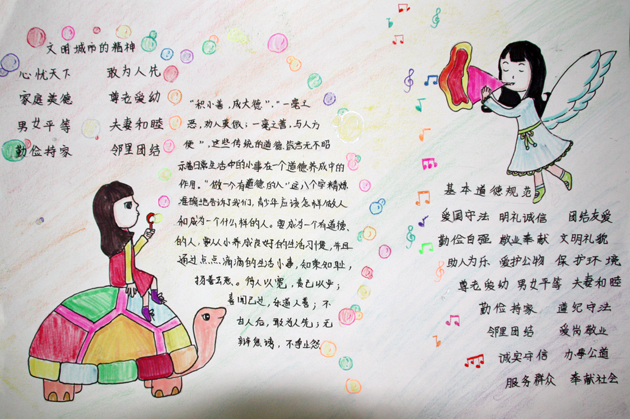 文明城市的精神
心忧天下 敢为人先
家庭美德 尊老爱幼
男女平等 夫妻和睦
勤俭持家 邻里团结
"积小善，成大德"，"一毫之
恶，劝人莫做；一毫之善，与人方
便"，这些传统的道德，皆无不昭
示着日常生活中的小事在一个道德养成中的
作用。"做一个有道德的人"这八个字精炼
准确地告诉我们，青少年应该怎样做人
和成为一个什么样的人。要成为一个有道德
的人，要从小养成良好的生活习惯，并且
通过点点滴滴的生活小事，如果知耻，
扬善去恶。待人以宽，责己以严；
喜闻己过，乐道人善；不
甘人后，敢为人先；无
基本道德规范
爱国守法 明礼诚信 团结友爱
勤俭自强 敬业奉献 文明礼貌
助人为乐 爱护公物 保护环境
尊老爱幼 男女平等 夫妻和睦
勤俭持家 遵纪守法
邻里团结 爱岗敬业
诚实守信 办事公道
服务群众 奉献社会